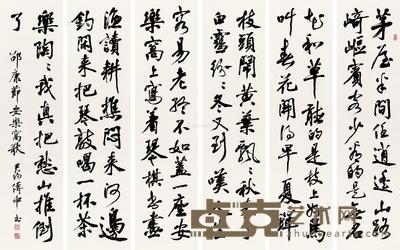 茅屋半間任逍遙山路
崎嶇賓客少看的是無名
花和草聽的是枝上鳥
叫春花開得早夏蟬
枝頭鬧黃葉飄〻秋
白雪紛〻冬又到嘆
容易老終不如蓋一座安
樂窩上寫着琴棋書畫
漁讀耕樵悶來河邊
釣閒來把琴敲喝一杯茶
樂陶〻我真把愁山推倒
了
邵康節安樂窩歌
傅申書
艺术网